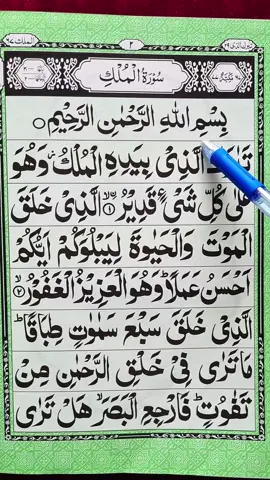 ٢
سُوْرَةُ الْمُلْكِ
بِسْمِ اللّٰهِ الرَّحْمٰنِ الرَّحِيْمِ
الَّذِىْ بِيَدِهِ الْمُلْكُ وَهُوَ
عَلٰى كُلِّ شَىْءٍ قَدِيْرُ ۙ﴿١﴾ الَّذِىْ خَلَقَ
الْمَوْتَ وَالْحَيٰوةَ لِيَبْلُوَكُمْ اَيُّكُمْ
اَحْسَنُ عَمَلًا ؕ وَهُوَ الْعَزِيْزُ الْغَفُوْرُ ۙ﴿٢﴾
الَّذِىْ خَلَقَ سَبْعَ سَمٰوٰتٍ طِبَاقًا ؕ
مَا تَرٰى فِىْ خَلْقِ الرَّحْمٰنِ مِنْ
تَفٰوُتٍ ؕ فَارْجِعِ الْبَصَرَ ۙ هَلْ تَرٰى